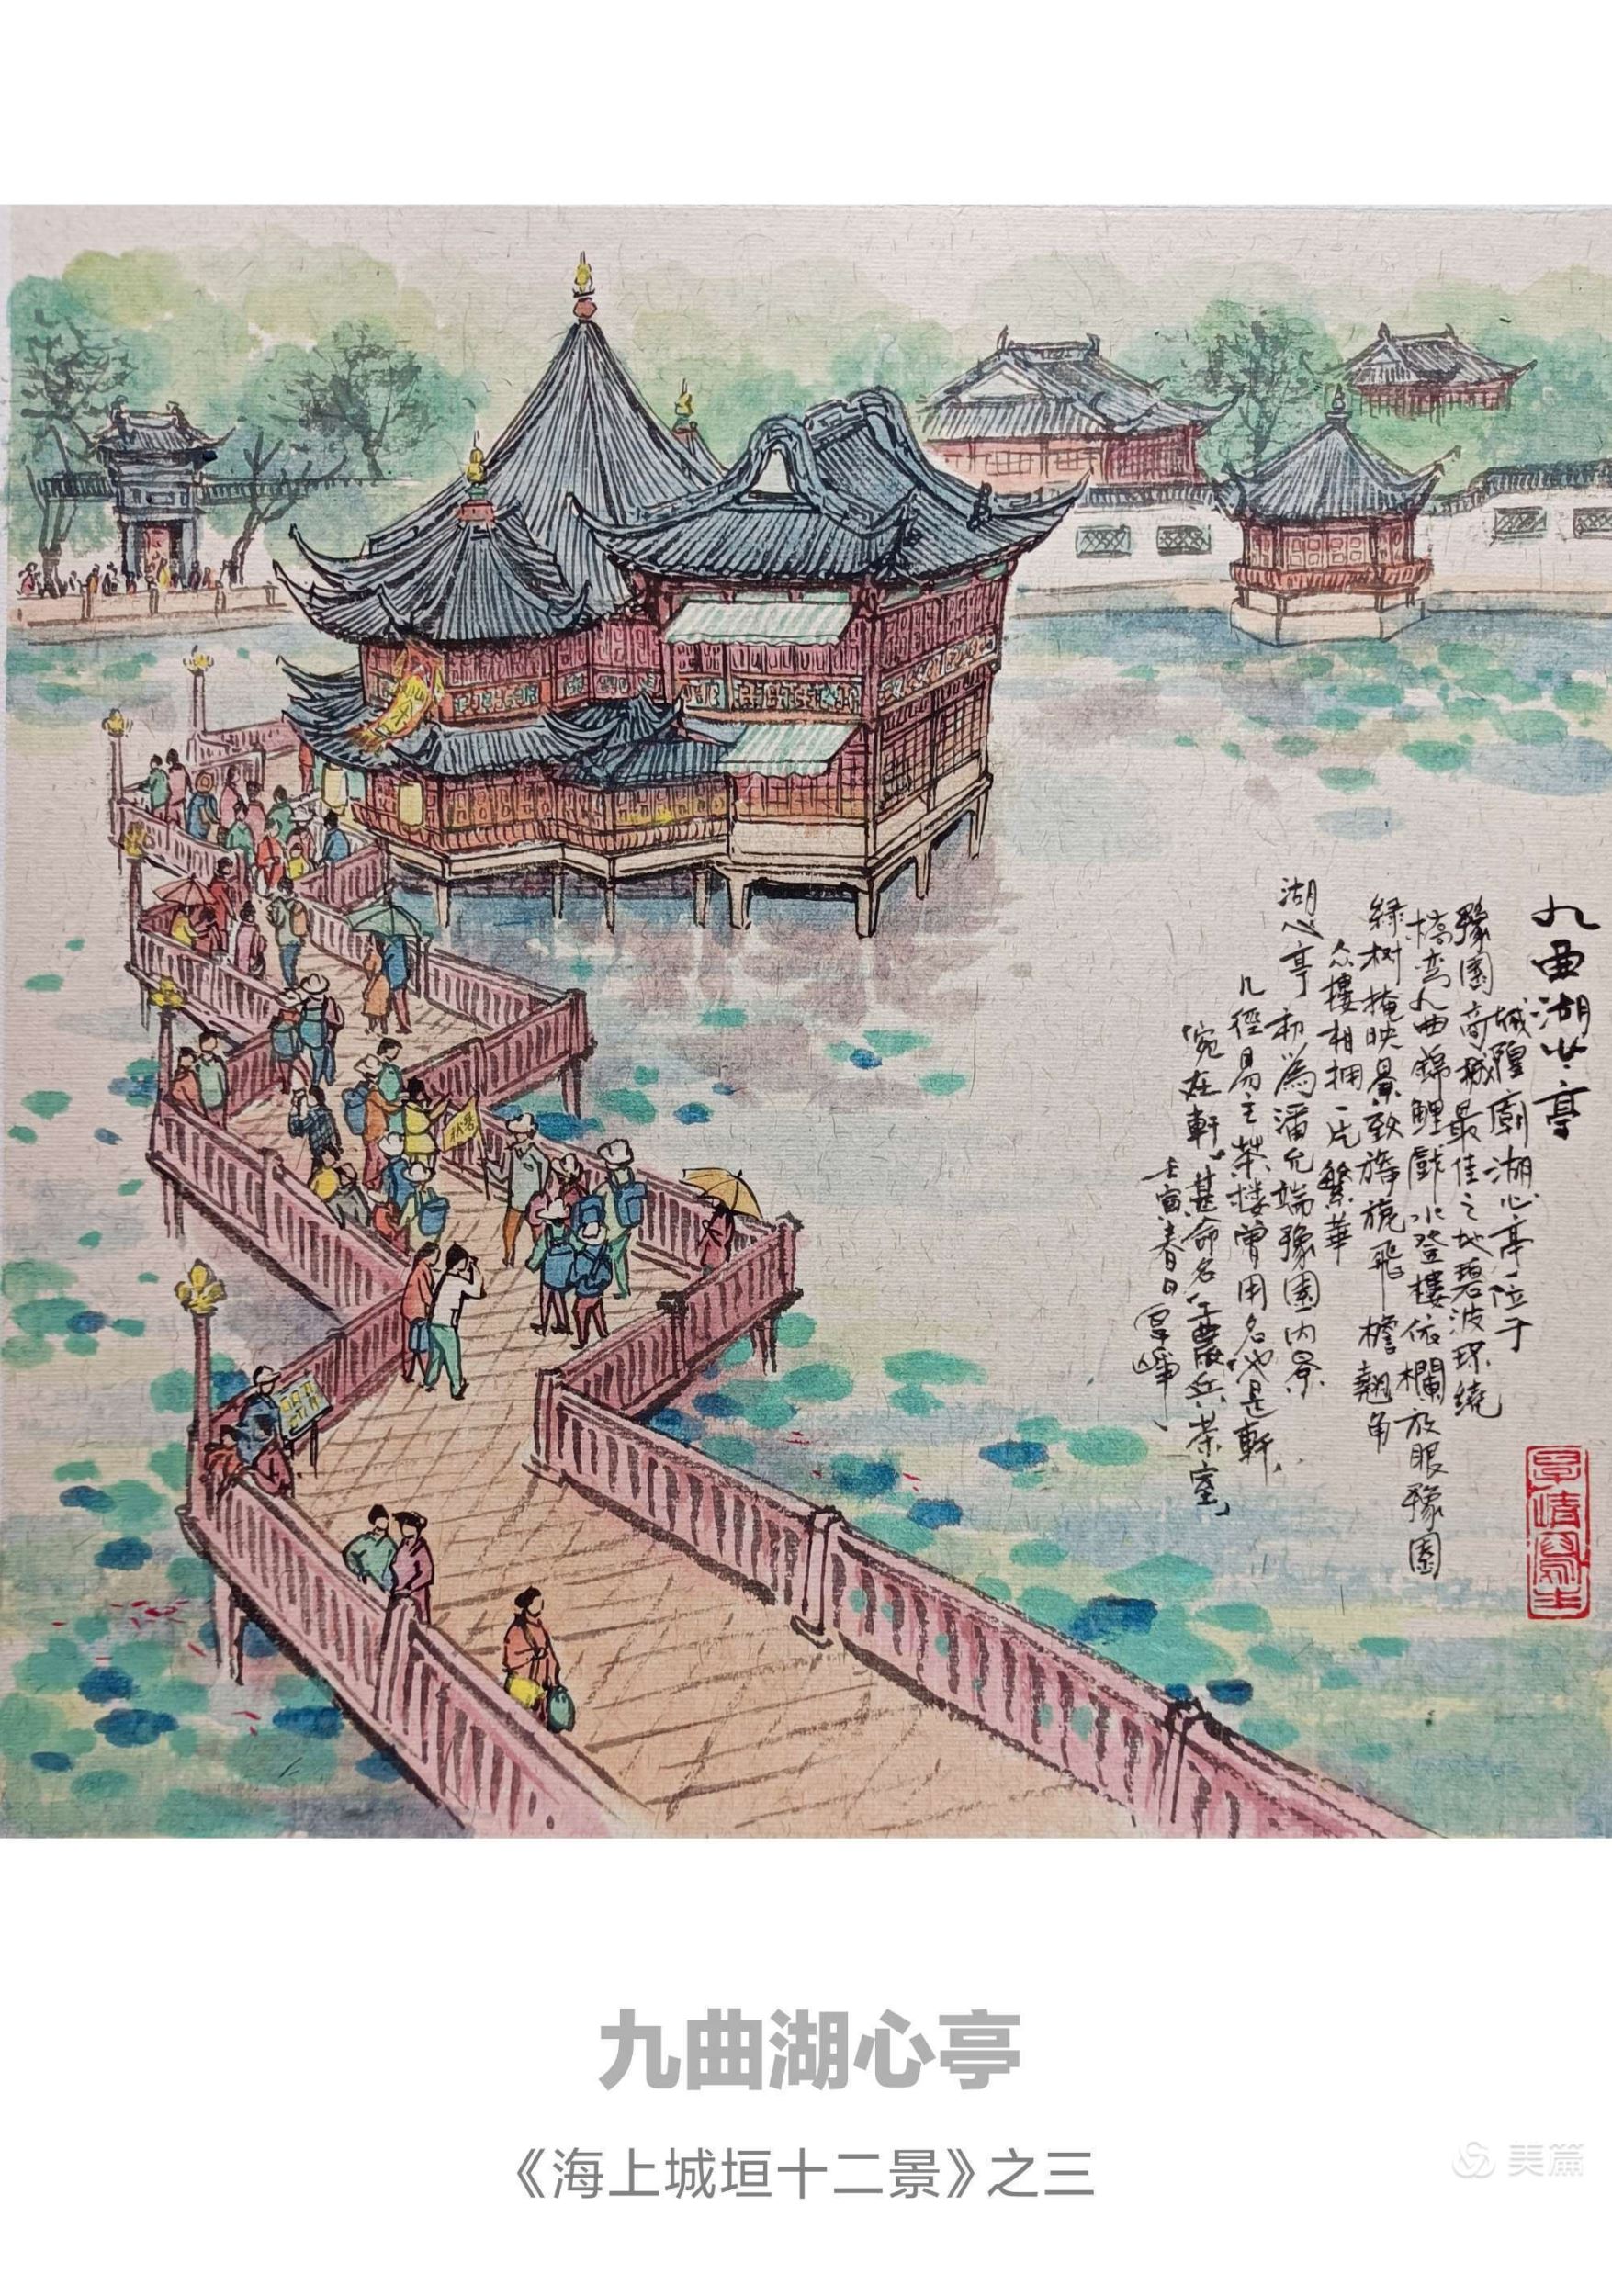 九曲湖心亭
城隍廟湖心亭位于
豫園商城最佳之地碧波环繞
橋弯九曲錦鯉戲水登樓依欄放眼豫園
緑树掩映景致旖旎飛檐翹角
众樓相拥一片繁華
湖心亭初為潘允端豫園内景
几徑易主茶楼曾用名也是軒
宛在軒甚命名
茶室
壬寅春日
九曲湖心亭
《海上城垣十二景》之三
美篇